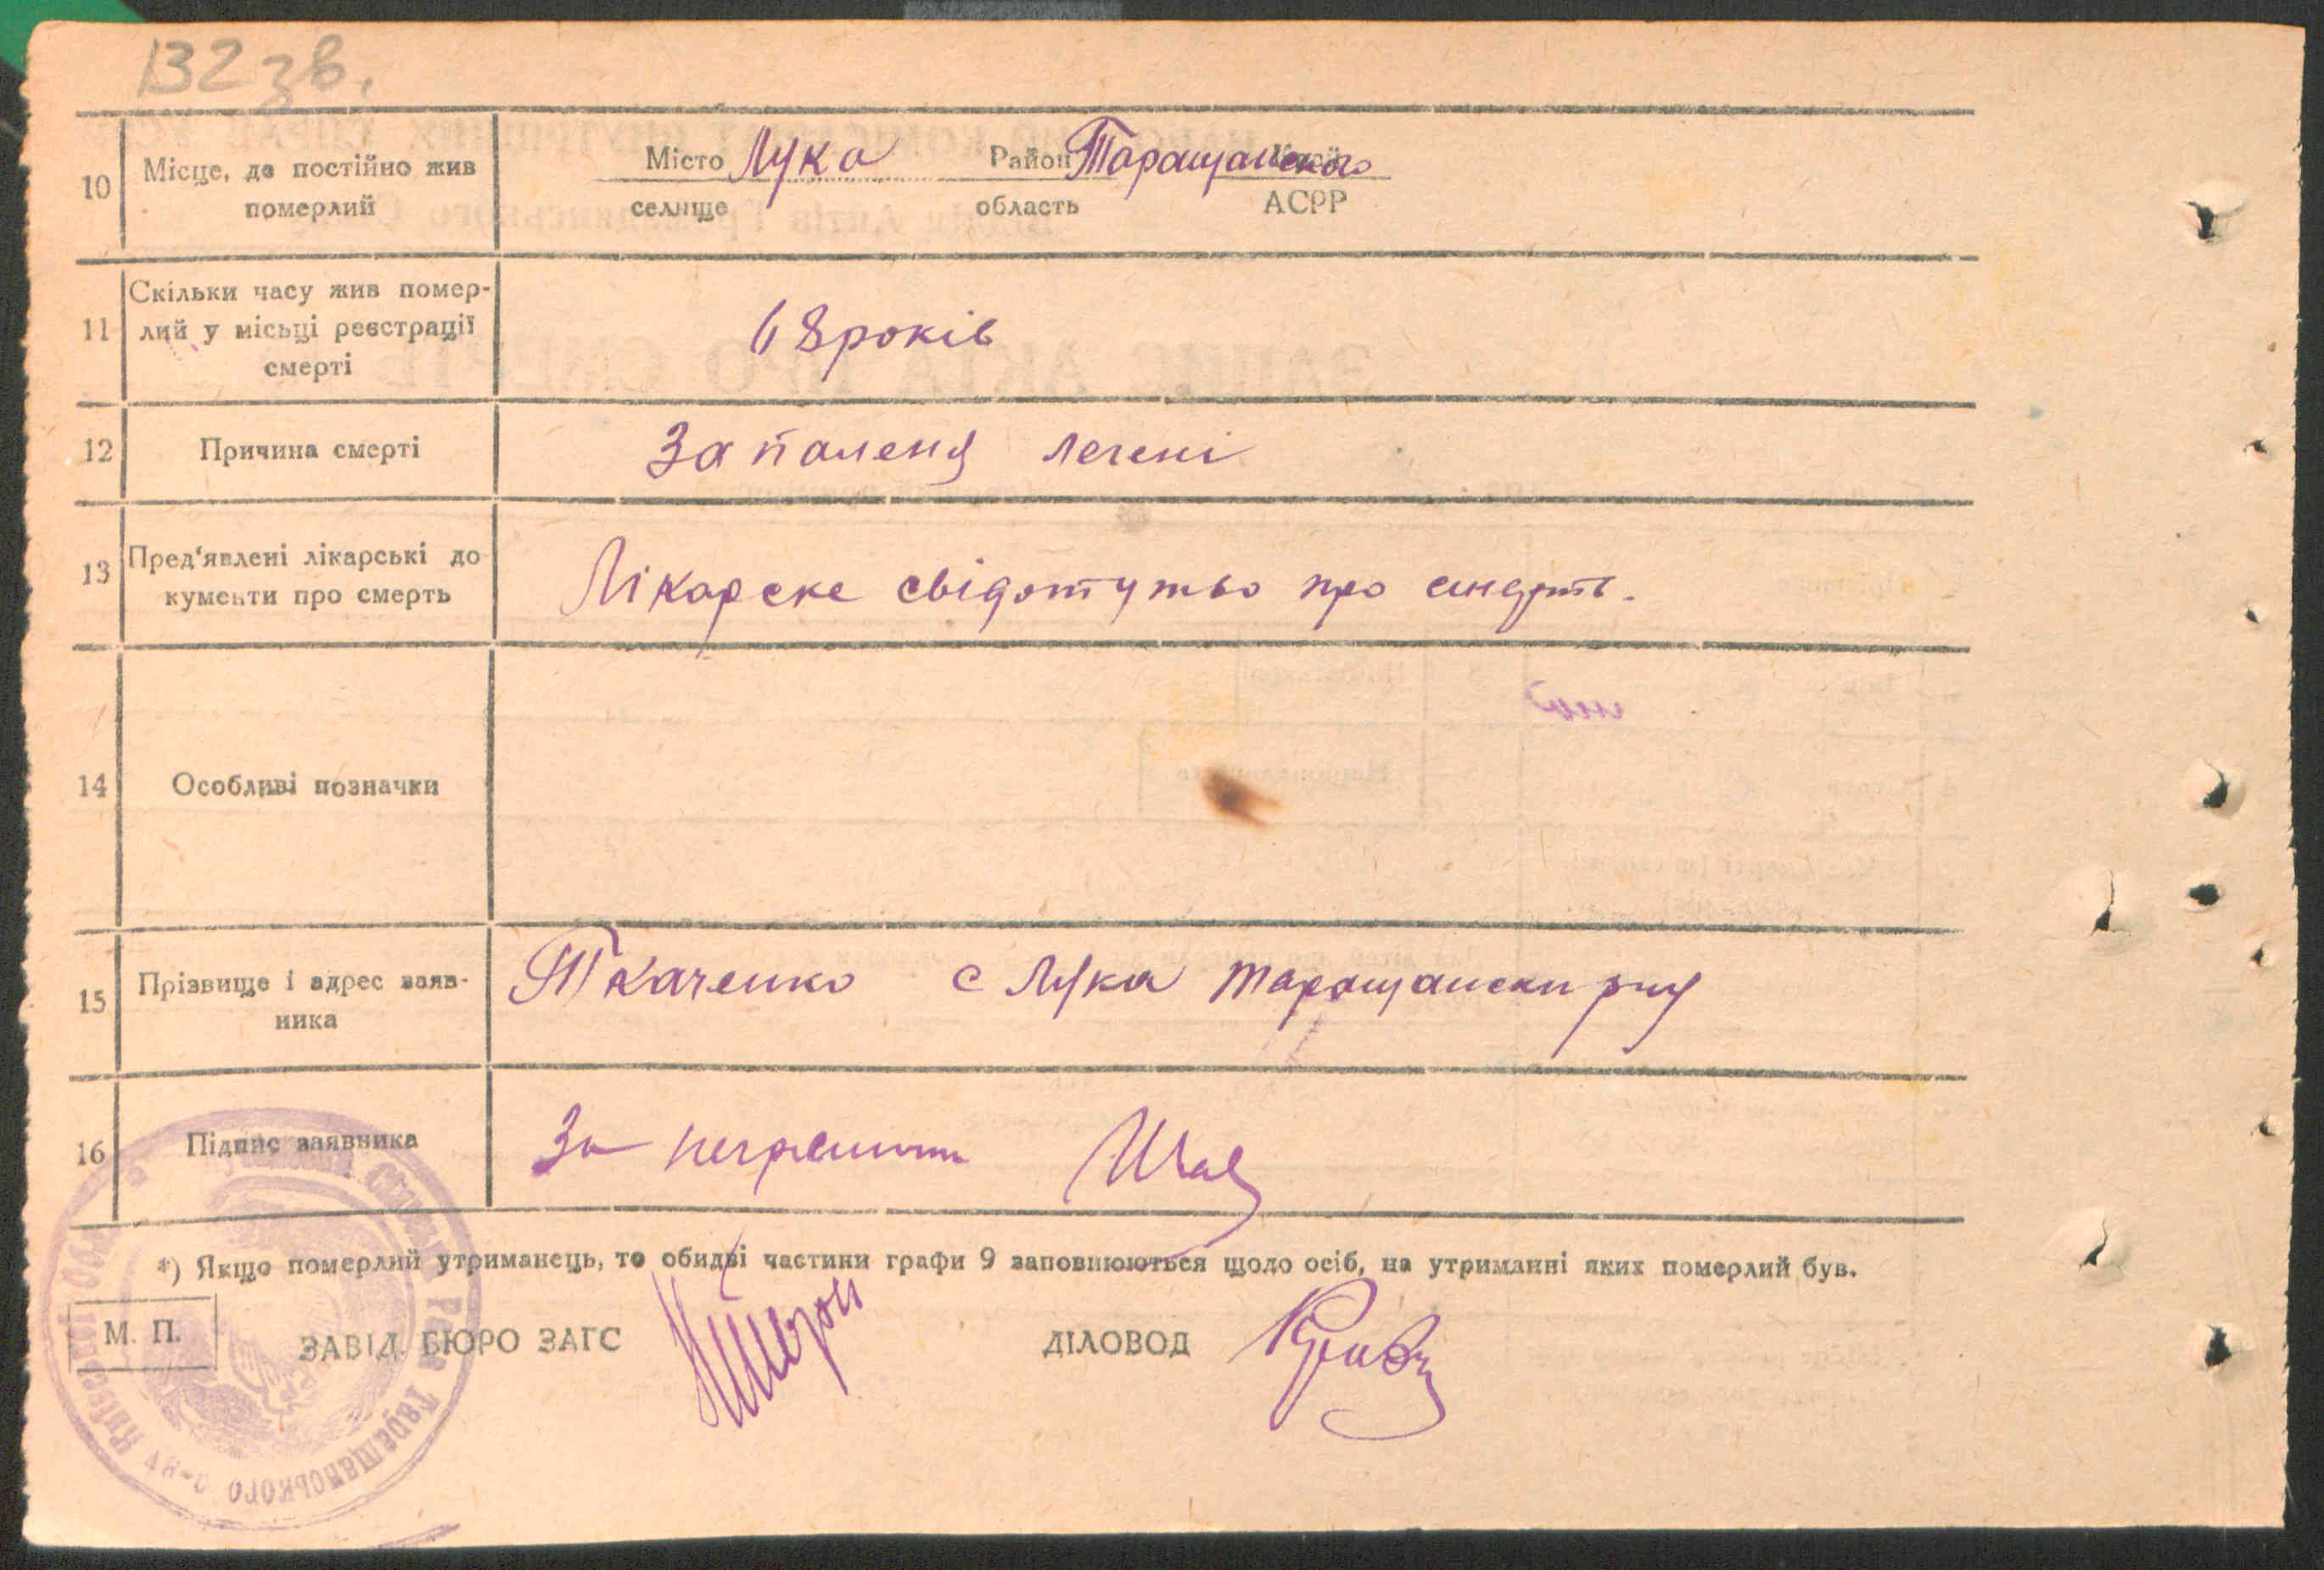 132 зв.
10 Місце, де постійно жив померлий
Місто Лука Район Таращанского
селище область АСРР
11 Скільки часу жив помер-
лий у місьці реєстрації
смерті
68 років
12 Причина смерті
Запаленя легені
13 Пред'явлені лікарські до
кументи про смерть
Лікарске свідотутво про смерть.
14 Особливі позначки
15 Прізвище і адрес заяв-
ника
Ткаченко с Лука Таращански р-ну
16 Підпис заявника
За
*) Якщо померлий утриманець, то обидві частини графи 9 заповнюються щодо осіб, на утриманні яких померлий був.
М. П.
ЗАВІД. БЮРО ЗАГС
ДІЛОВОД
Рада Таращанського р-ну Київської Обл.